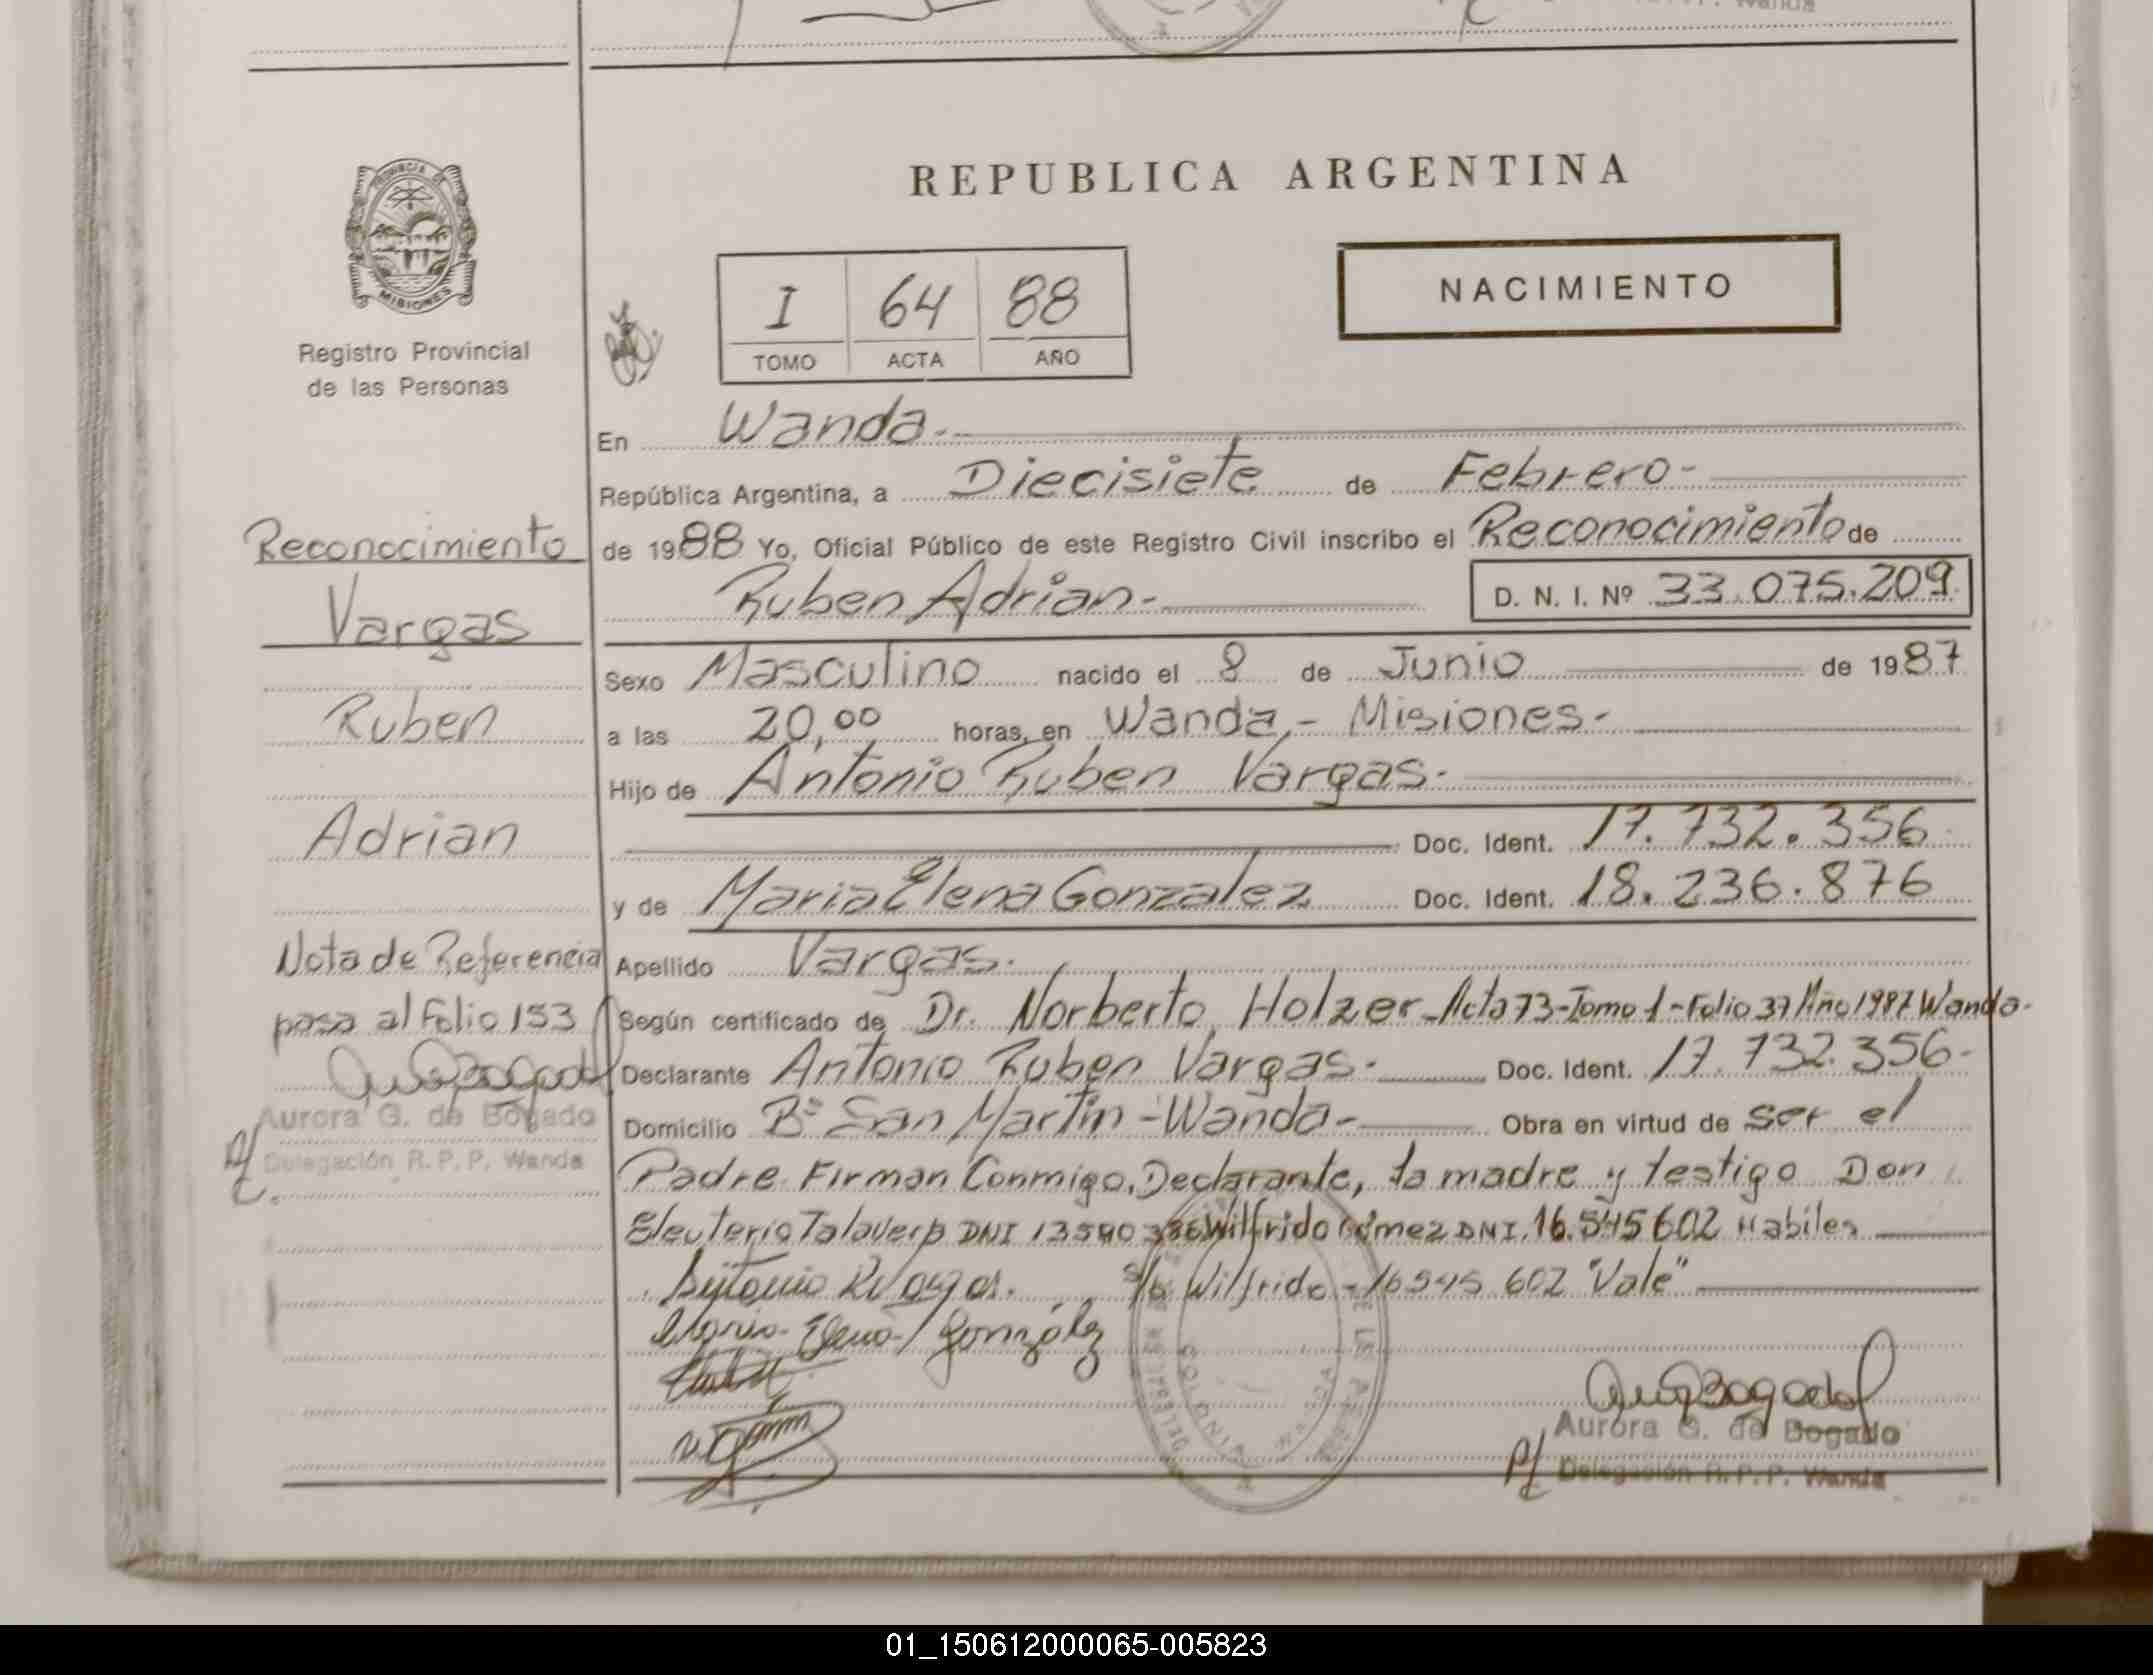 REPUBLICA ARGENTINA
PROVINCIA DE
MISIONES
Registro Provincial
de las Personas
NACIMIENTO
I 64 88
TOMO ACTA AÑO
En Wanda.-
República Argentina, a Diecisiete de Febrero-
de 1988 Yo, Oficial Público de este Registro Civil inscribo el Reconocimiento de
Ruben Adrian- D. N. I. Nº 33.075.209
Sexo Masculino nacido el 8 de Junio de 1987
a las 20,00 horas, en Wanda,- Misiones-
Hijo de Antonio Ruben Vargas-
Doc. Ident. 17.732.356
y de Maria Elena Gonzalez Doc. Ident. 18.236.876
Apellido Vargas.
Según certificado de Dr. Norberto Holzer-Acta 73-Tomo 1-Folio 37 Año 1987 Wanda-
Declarante Antonio Ruben Vargas- Doc. Ident. 17.732.356-
Domicilio Bº San Martin-Wanda- Obra en virtud de ser el
Padre. Firman Conmigo, Declarante, la madre y testigo Don
Eleuterio Talavera DNI Wilfrido Gómez DNI. 16.545602 Habiles
s/b Wilfrido-16545.602 "Vale"
Maria Elena González
Aurora G. de Bogado
Delegación R.P.P. Wanda
Reconocimiento
Vargas
Ruben
Adrian
Nota de Referencia
pasa al Folio 153
Aurora G. de Bogado
Delegación R.P.P. Wanda
01_150612000065-005823